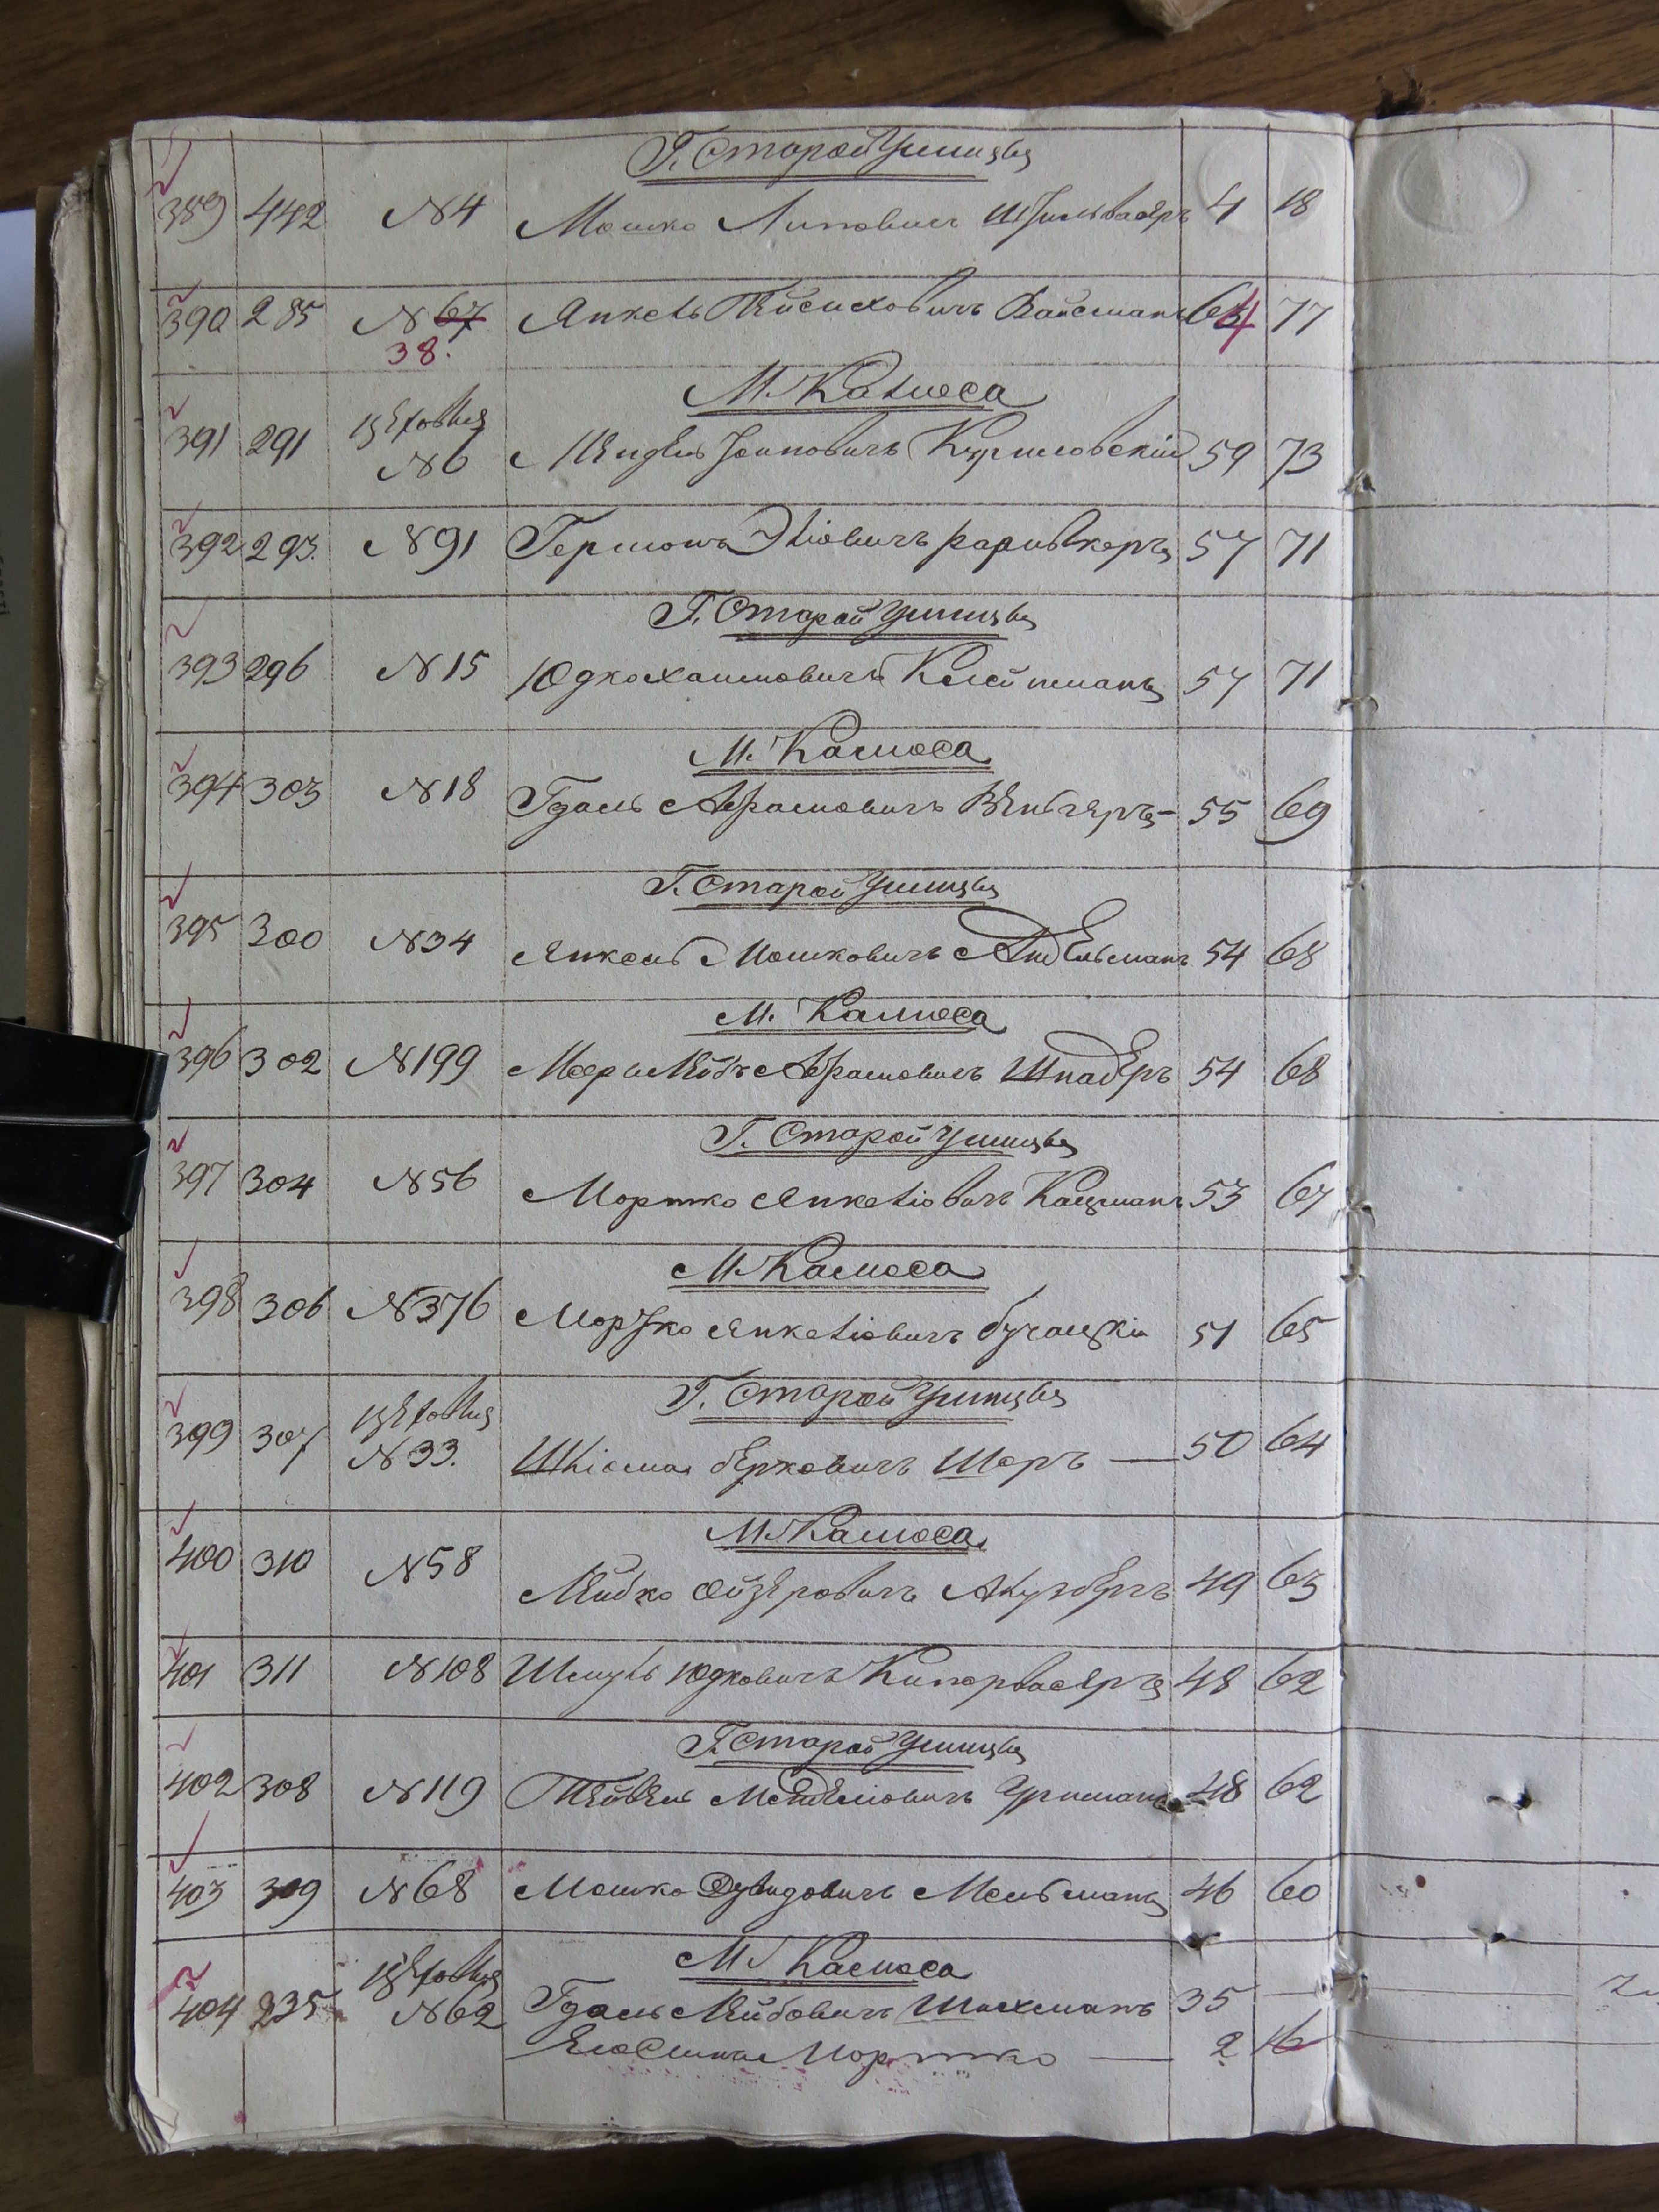 Г. Старой Ушицы
389 442 №4 Мошко Липович Зильваеръ 4 18
390 285 №67 Янкель Пейсиховичъ Вайсманъ 64 77
38.
М. Калюса
391 291 цеховыя
№6 Мендель Іосиповичъ 59 73
392 293. №91 Гершонъ Эліовичъ 57 71
Г. Старой Ушицы
393 296 №15 Юдко Хаимовичъ Клейтманъ 57 71
М. Калюса
394 303 №18 Гдаль Абрамовичъ Венгеръ 55 69
Г. Старой Ушицы
395 300 №34 Янкель Мошковичъ Андельманъ 54 68
М. Калюса
396 302 №199 Меерь Лейбъ Абрамовичъ Шпадеръ 54 68
Г. Старой Ушицы
397 304 №56 Мортко Янкеліовичъ Кацманъ 53 67
М. Калюса
398 306 №376 Мортко Янкеліовичъ Бучацкій 51 65
Г. Старой Ушицы
399 307 цеховыя
№33. Шліома Берковичъ Шоръ — 50 64
М. Калюса
400 310 №58 Лейбко Ойзеровичъ 49 63
401 311 №108 Шмуль Юдковичъ Кипервасеръ 48 62
Г. Старой Ушицы
402 308 №119 Тейвель Менделіовичъ Урисманъ 48 62
403 309 №68 Мошко Дувидовичъ Мельманъ 46 60
М. Калюса
404 235 цеховыя
№62 Гдаль Лейбовичъ Шихманъ 35 —
Его Сынъ Мортко — 2 16